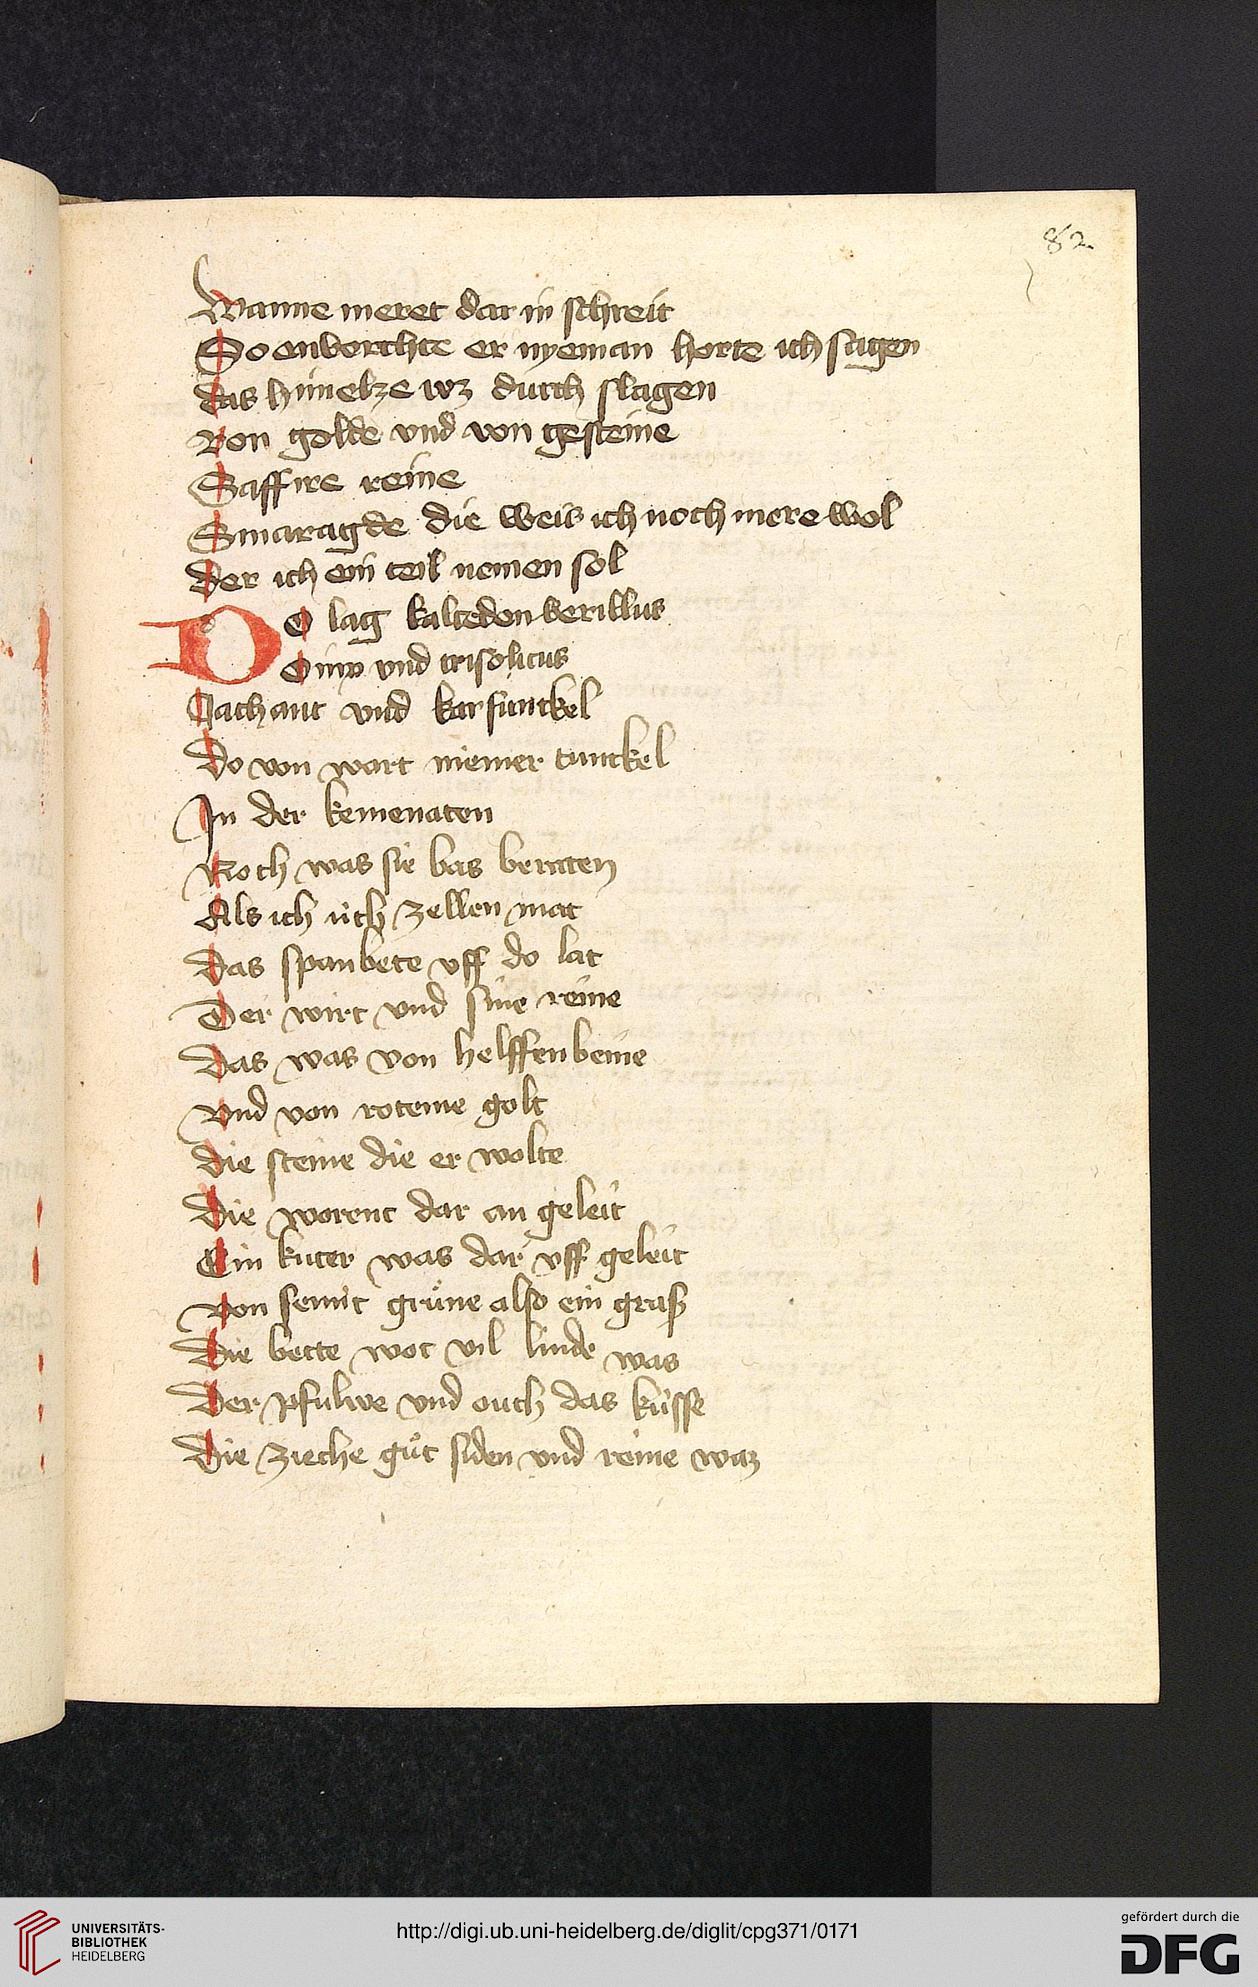 82.
Wanne meret dar in schreit
So envorchte er nyeman horte ich sagen
Das himelze wz durch slagen
Von golde vnd von gesteine
Saffire reine
Smaragde die weis ich noch mere wol
Der ich ein teil nemen sol
Do lag kalcedon berillus
Onix vnd crisolicus
Jachant vnd karfunckel
Do von wart niemer tunckel
In der kemenaten
Noch was sie bas beraten
Als ich uͤch zellen mac
Das spanbete vff do lac
Der wirt vnd sine reine
Das was von helffenbeine
Vnd von roteme golt
Die steine die er wolte
Die worent dar an geleit
Ein kuter was dar vff geleit
Von semit gruͤne also ein graß
Die bette wot vil linde was
Der pfulwe vnd ouch das kuͤsse
Die zieche guͤt siden vnd reine waz
UNIVERSITÄTS-
BIBLIOTHEK
HEIDELBERG
http://digi.ub.uni-heidelberg.de/diglit/cpg371/0171
gefördert durch die
DFG